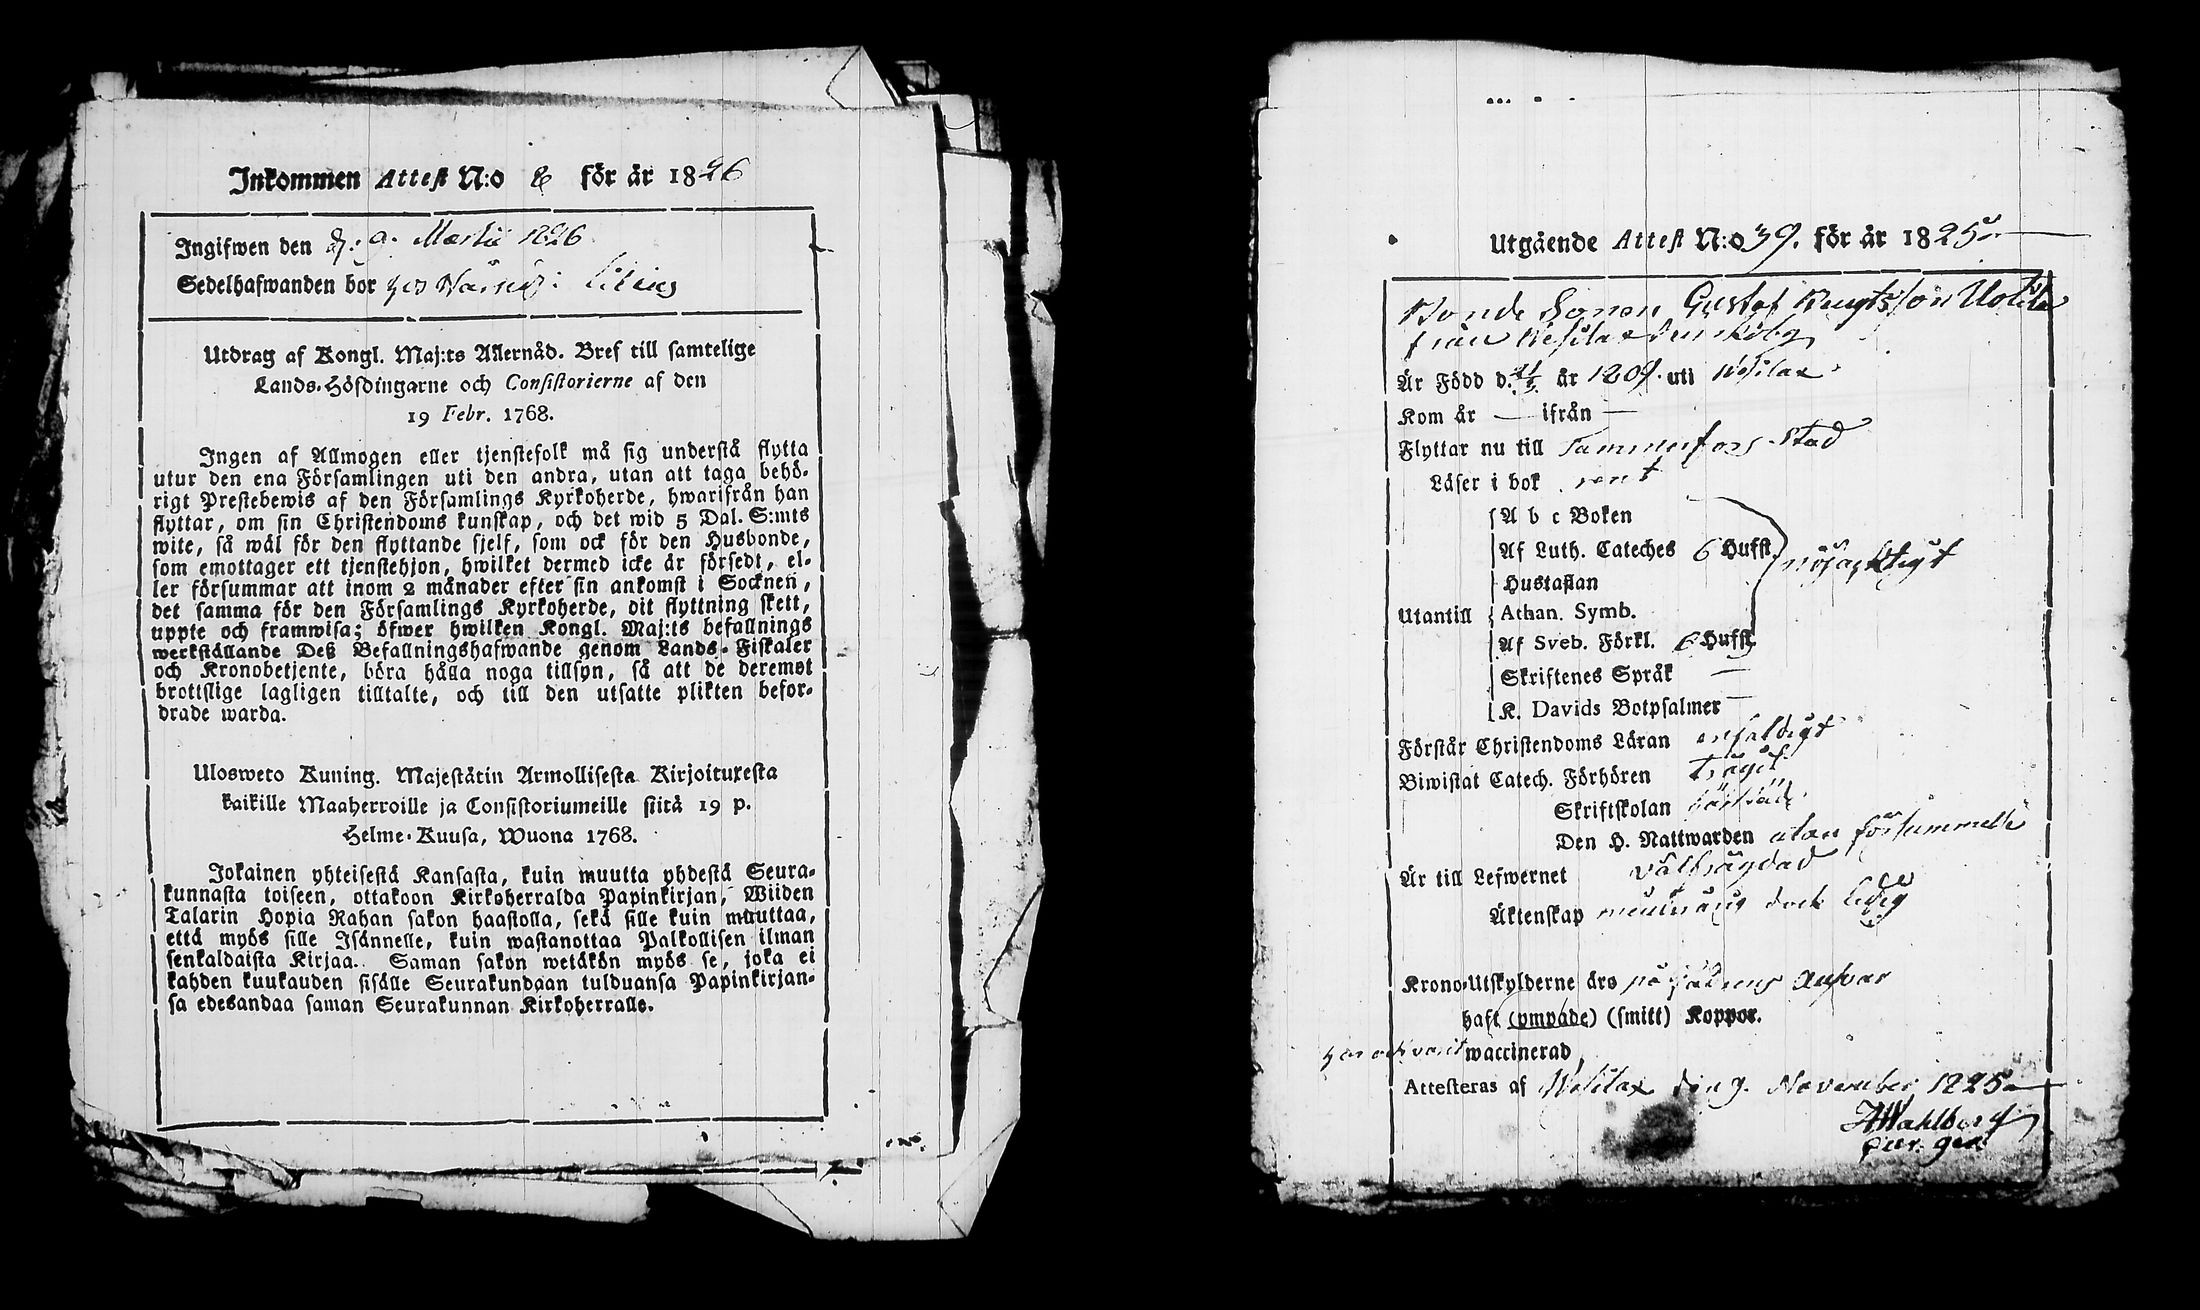 Inkommen Attest N:o 8 för år 1826
Ingifwen den d. 9. Martii 1826
Sedelhafwanden bor hos
Utdrag af Kongl. Maj:ts Allernåd. Bref till samtelige
Lands-Höfdingarne och Consistorierne af den
19 Febr. 1768.
Ingen af Allmogen eller tjenstefolk må sig understå flytta
utur den ena Församlingen uti den andra, utan att taga behö-
rigt Prestebewis af den Församlings Kyrkoherde, hwarifrån han
flyttar, om sin Christendoms kunskap, och det wid 5 Dal. S:mts
wite, så wäl för den flyttande sjelf, som ock för den Husbonde,
som emottager ett tjenstehjon, hwilket dermed icke är försedt, el-
ler försummar att inom 2 månader efter sin ankomst i Socknen,
det samma för den Församlings Kyrkoherde, dit flyttning skett,
uppte och framwisa; öfwer hwilken Kongl. Maj:ts befallnings
werkställande Deß Befallningshafwande genom Lands-Fiskaler
och Kronobetjente, böra hålla noga tillsyn, så att de deremot
brottslige lagligen tilltalte, och till den utsatte plikten befor-
drade warda.
Ulosweto Kuning. Majestätin Armollisesta Kirjoituxesta
kaikille Maaherroille ja Consistoriumeille siitä 19 p.
Helme-Kuusa, Wuona 1768.
Jokainen yhteisestä Kansasta, kuin muutta yhdestä Seura-
kunnasta toiseen, ottakoon Kirkoherralda Papinkirjan, Wiiden
Talarin Hopia Rahan sakon haastolla, sekä sille kuin muuttaa,
että myös sille Isännelle, kuin wastanottaa Palkollisen ilman
senkaldaista Kirjaa. Saman sakon wetäkön myös se, joka ei
kahden kuukauden sisälle Seurakundaan tulduansa Papinkirjan-
sa edesandaa saman Seurakunnan Kirkoherralle.
Utgående Attest N:o 39. för år 1825.
Bonde Sonen Gustaf Bengtsson Uotila
från Wesilax
Är Född d. år 1809. uti Wesilax
Kom år — ifrån —
Flyttar nu till Tammerfors Stad
Läser i bok rent
A b c Boken
Af Luth. Cateches 6 Hufst. nöjagktigt
Hustaflan
Utantill Athan. Symb.
Af Sveb. Förkl. 6 Hufst.
Skriftenes Språk —
K. Davids Botpsalmer —
Förstår Christendoms Läran enfaldigt
Biwistat Catech. Förhören trägit
Skriftskolan
Den H. Nattwarden utan försummelse
Är till Lefwernet välfrägdad
Äktenskap dock ledig
Krono-Utskylderne äro på fadrens ansvar
haft (ympade) (smitt) Koppor.
har ock varit waccinerad
Attesteras af Wesilax den 9. November 1825
HWahlberg